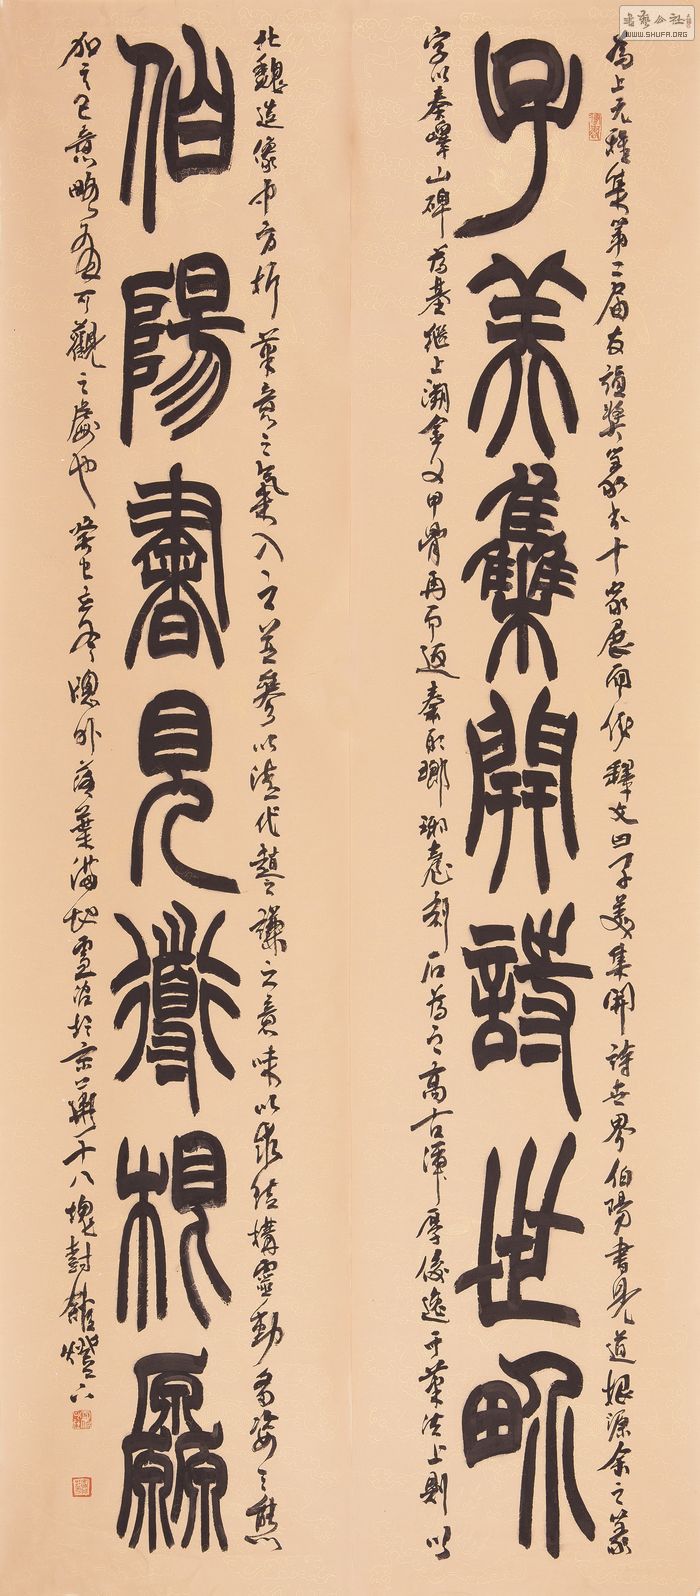 書藝公社
WWW.SHUFA.ORG
子美集開詩世界
為上元雅集第二屆友誼獎篆書十家展而作釋文曰子美集開詩世界伯陽書見道根源余之篆
字以秦嶧山碑為基繼上溯金文甲骨再而迤秦瑯琊臺刻石為之高古渾厚俊逸于筆法上則以
伯陽書見道根源
北魏造像中方折筆意之氣入之並參以清代趙之謙之意味以求結構靈動多姿之態
加之己意略有可觀之處也癸巳立冬窗外落葉滿地雪浴於京華十八塊封館燈下